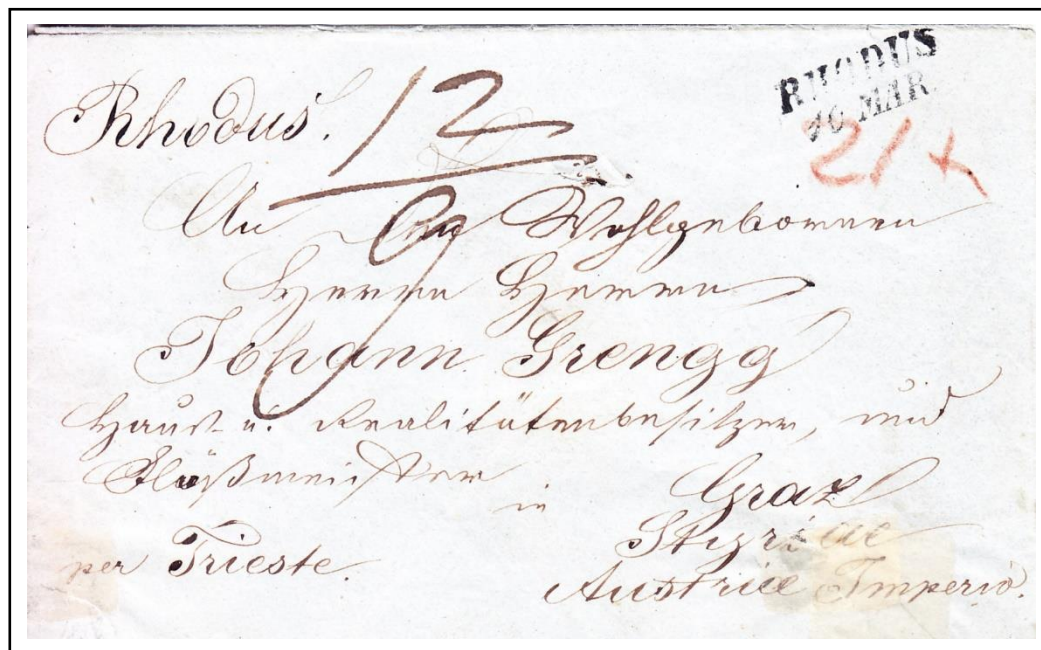 Rhodus.
12
RHODUS
10 MAR
21 x
An den Wohlgebornen
9
Herrn Herrn
Johann Grengg
Haus u. Realitätenbesitzer, und
Floßmeister
in Graz
Styriae
per Trieste.
Austriae Imperio.